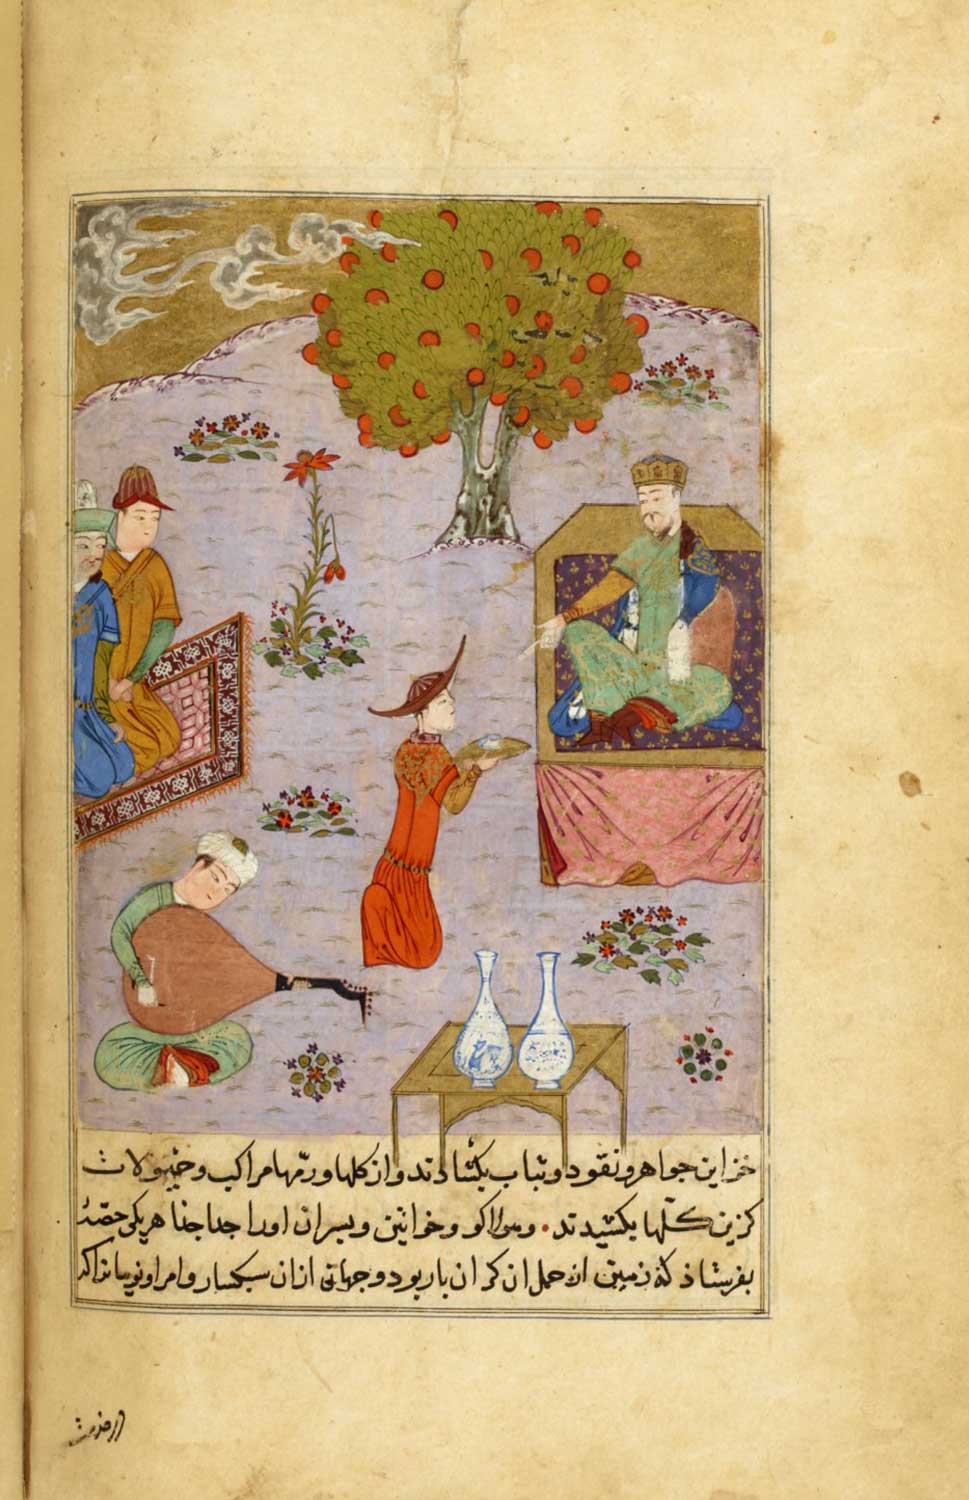 خزاین جواهر و نقود و ثیاب بکشادند و از کلها و رمّها مراکب و خیولات
کزین کلّها بکشیدند • وهولاکو و خواتین و پسران او را جدا جدا هر یکی حصّهٔ
بفرستاذ که زمین از حمل ان کران بار بود و جهانی از ان سبکسار و امرا و نوینانرا که
در خدمت